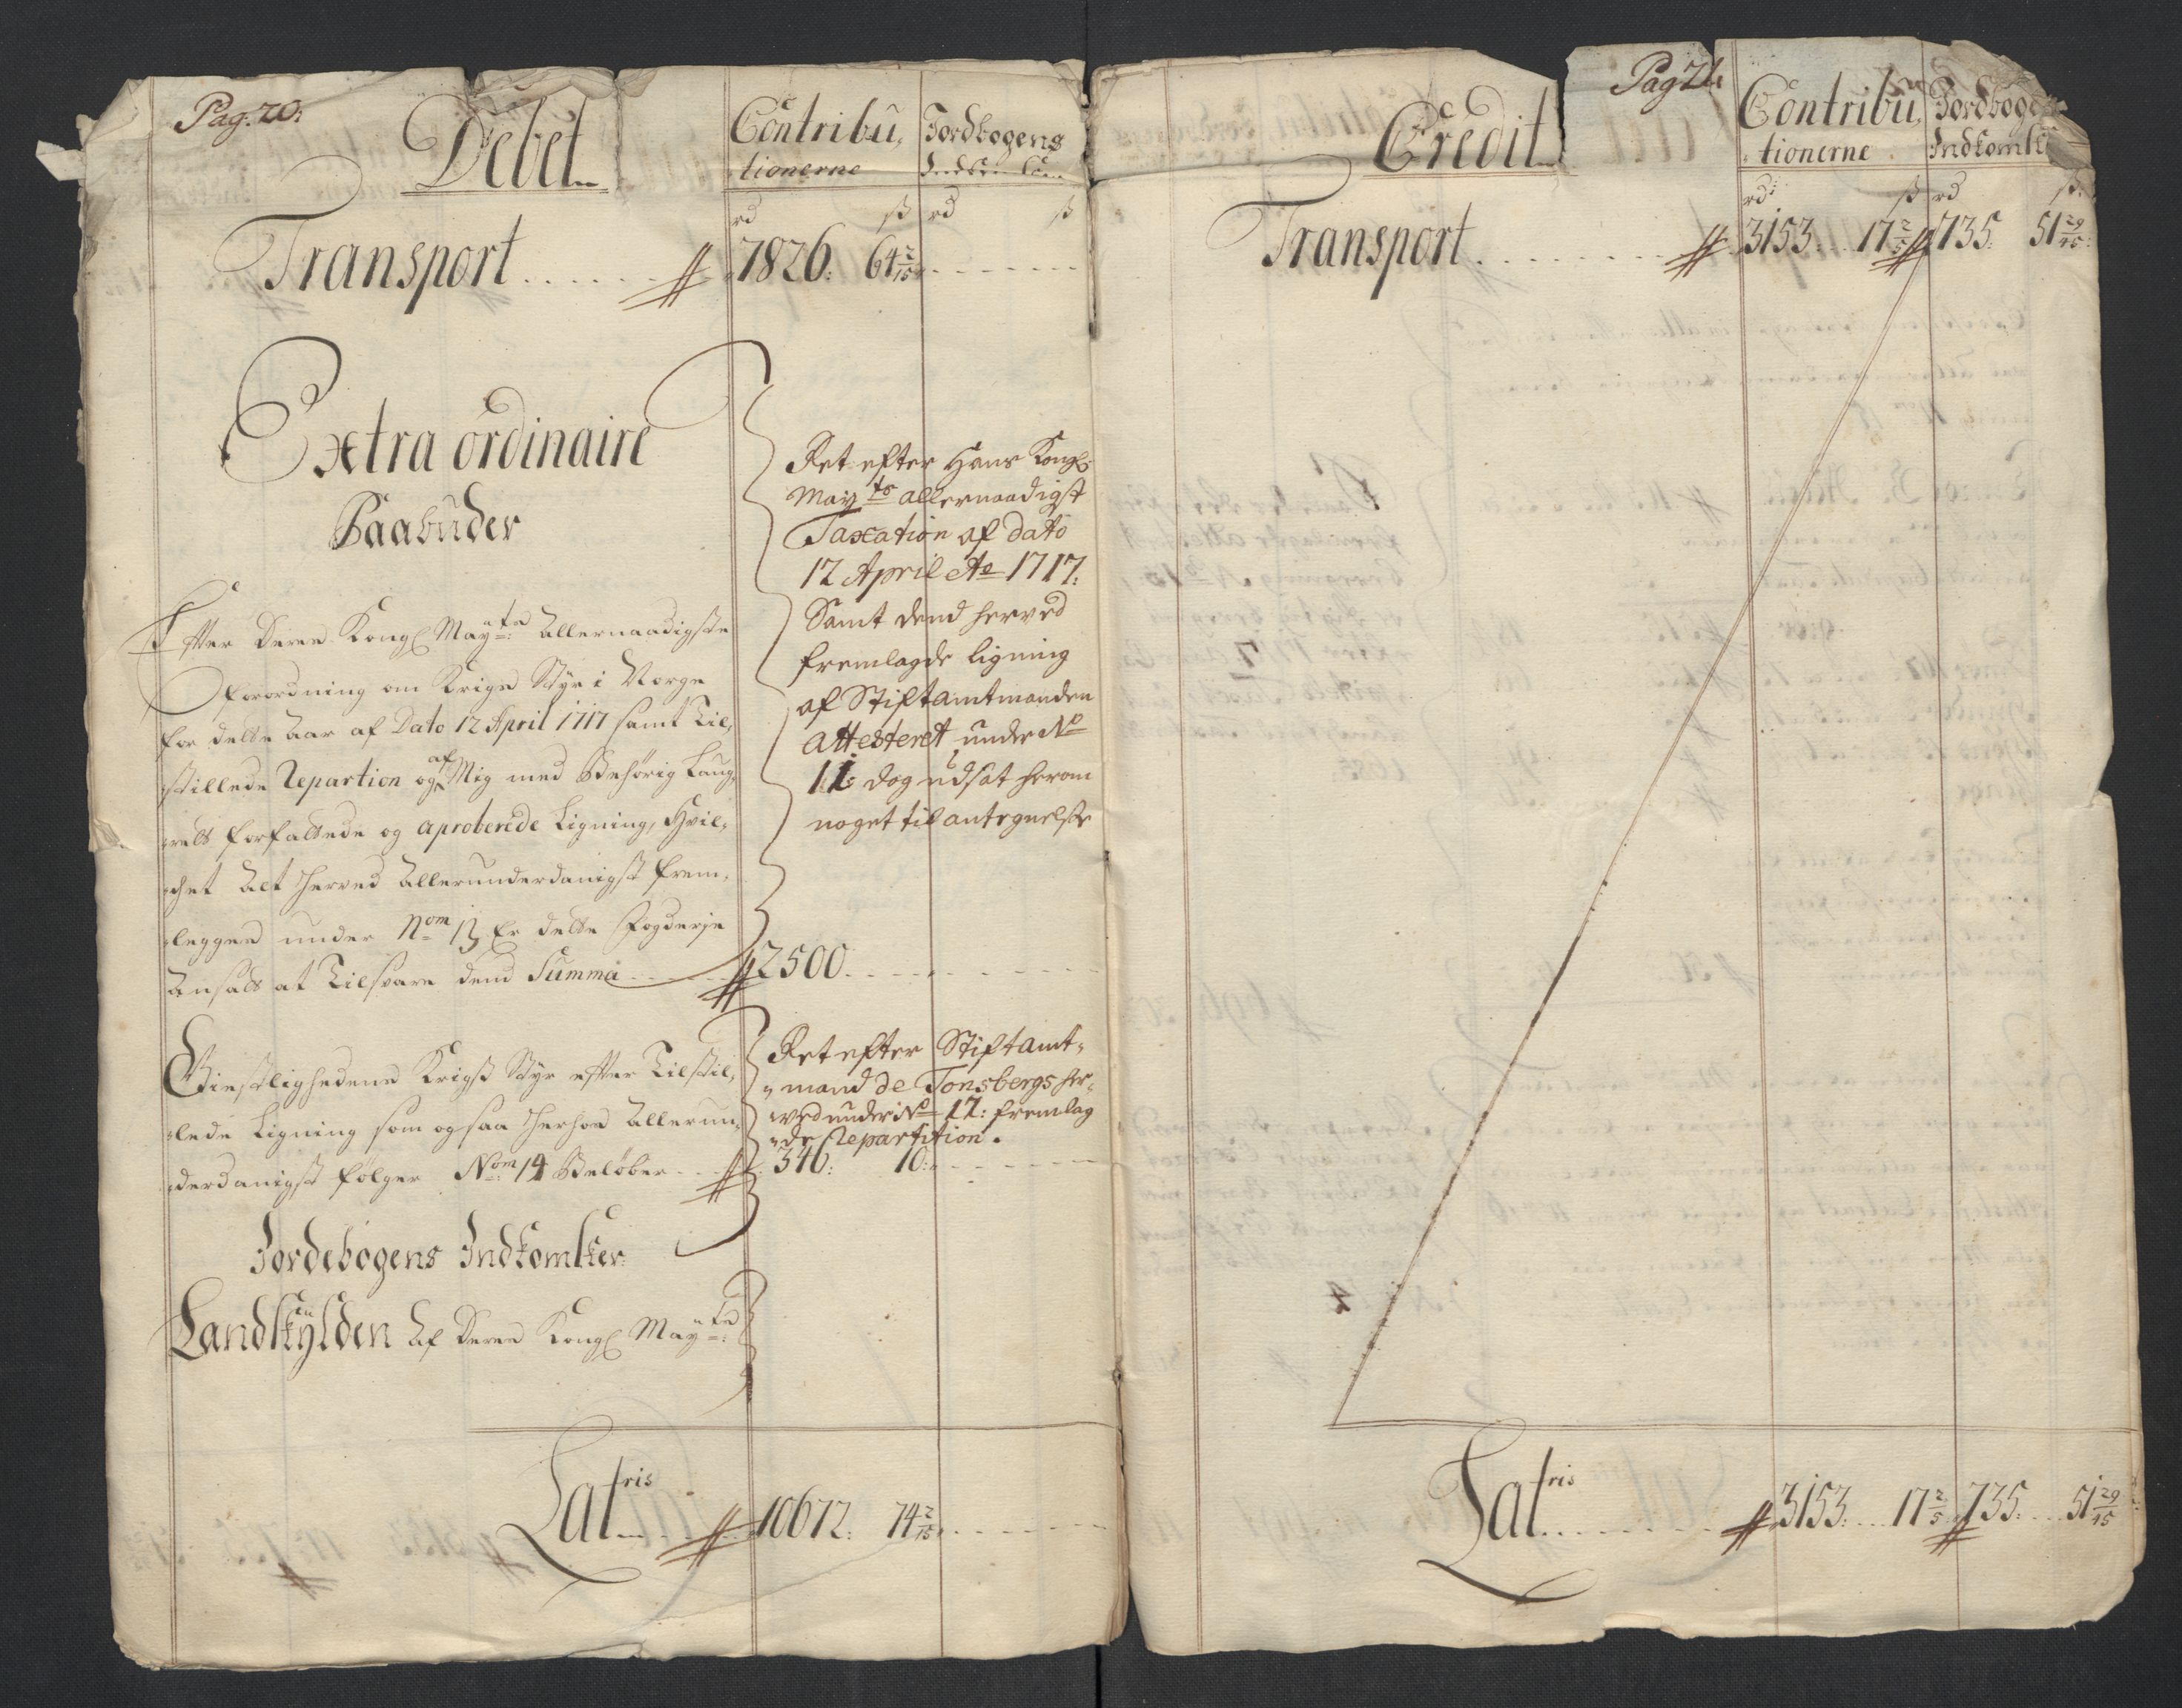 Pag: 20:
Debet
Contribu,
tionerne
Jordbogens
rd ß rd ß
Transport ..... 7826: 64 2/15
Extra ordinaire
Paabuder
Efter Deres Kongl May:ts Allernaadigste
forordning om Krigs Styr i Norge
for dette Aar af Dato 12 April 1717 samt Til,
stillede Repartion og af Mig med Behørig Laug,
retts forfattede og aproberede Ligning, Hvil,
chet alt herved Allerunderdanigst frem,
legges under Nom 13 Er dette Fogderje
Ansatt at Tilsvare dend Summa .... 2500
Ret efter Hans Kongl:
May:ts allernaadigst
Taxation af dato
12 April Ao 1717:
Samt dend herved
fremlagde ligning
af Stiftamtmanden
Attesteret under No
11: dog udsat herom
noget til antegnelse
Gieistlighedens Krigs Styr efter Tilstil,
lede Ligning som ogsaa herhos Allerun,
derdanigst følger Nom: 14 Beløber ... 346: 10:
Ret efter Stiftamt,
mand de Tonsbergs her,
ved under No 12: fremlag
de Repartition.
Jordebogens Indkomster
Landskylden Af Deres Kongl May:ts
Lat ris ..... 10672: 74 2/15
Pag 21
Credit
Contribu,
tionerne
Jordbogens
Indkomst
rd: ß rd ß:
Transport ........ 3153: 17 2/5 735: 51 29/45:
Lat ris ....... 3153: 17 2/5 735: 51 29/45